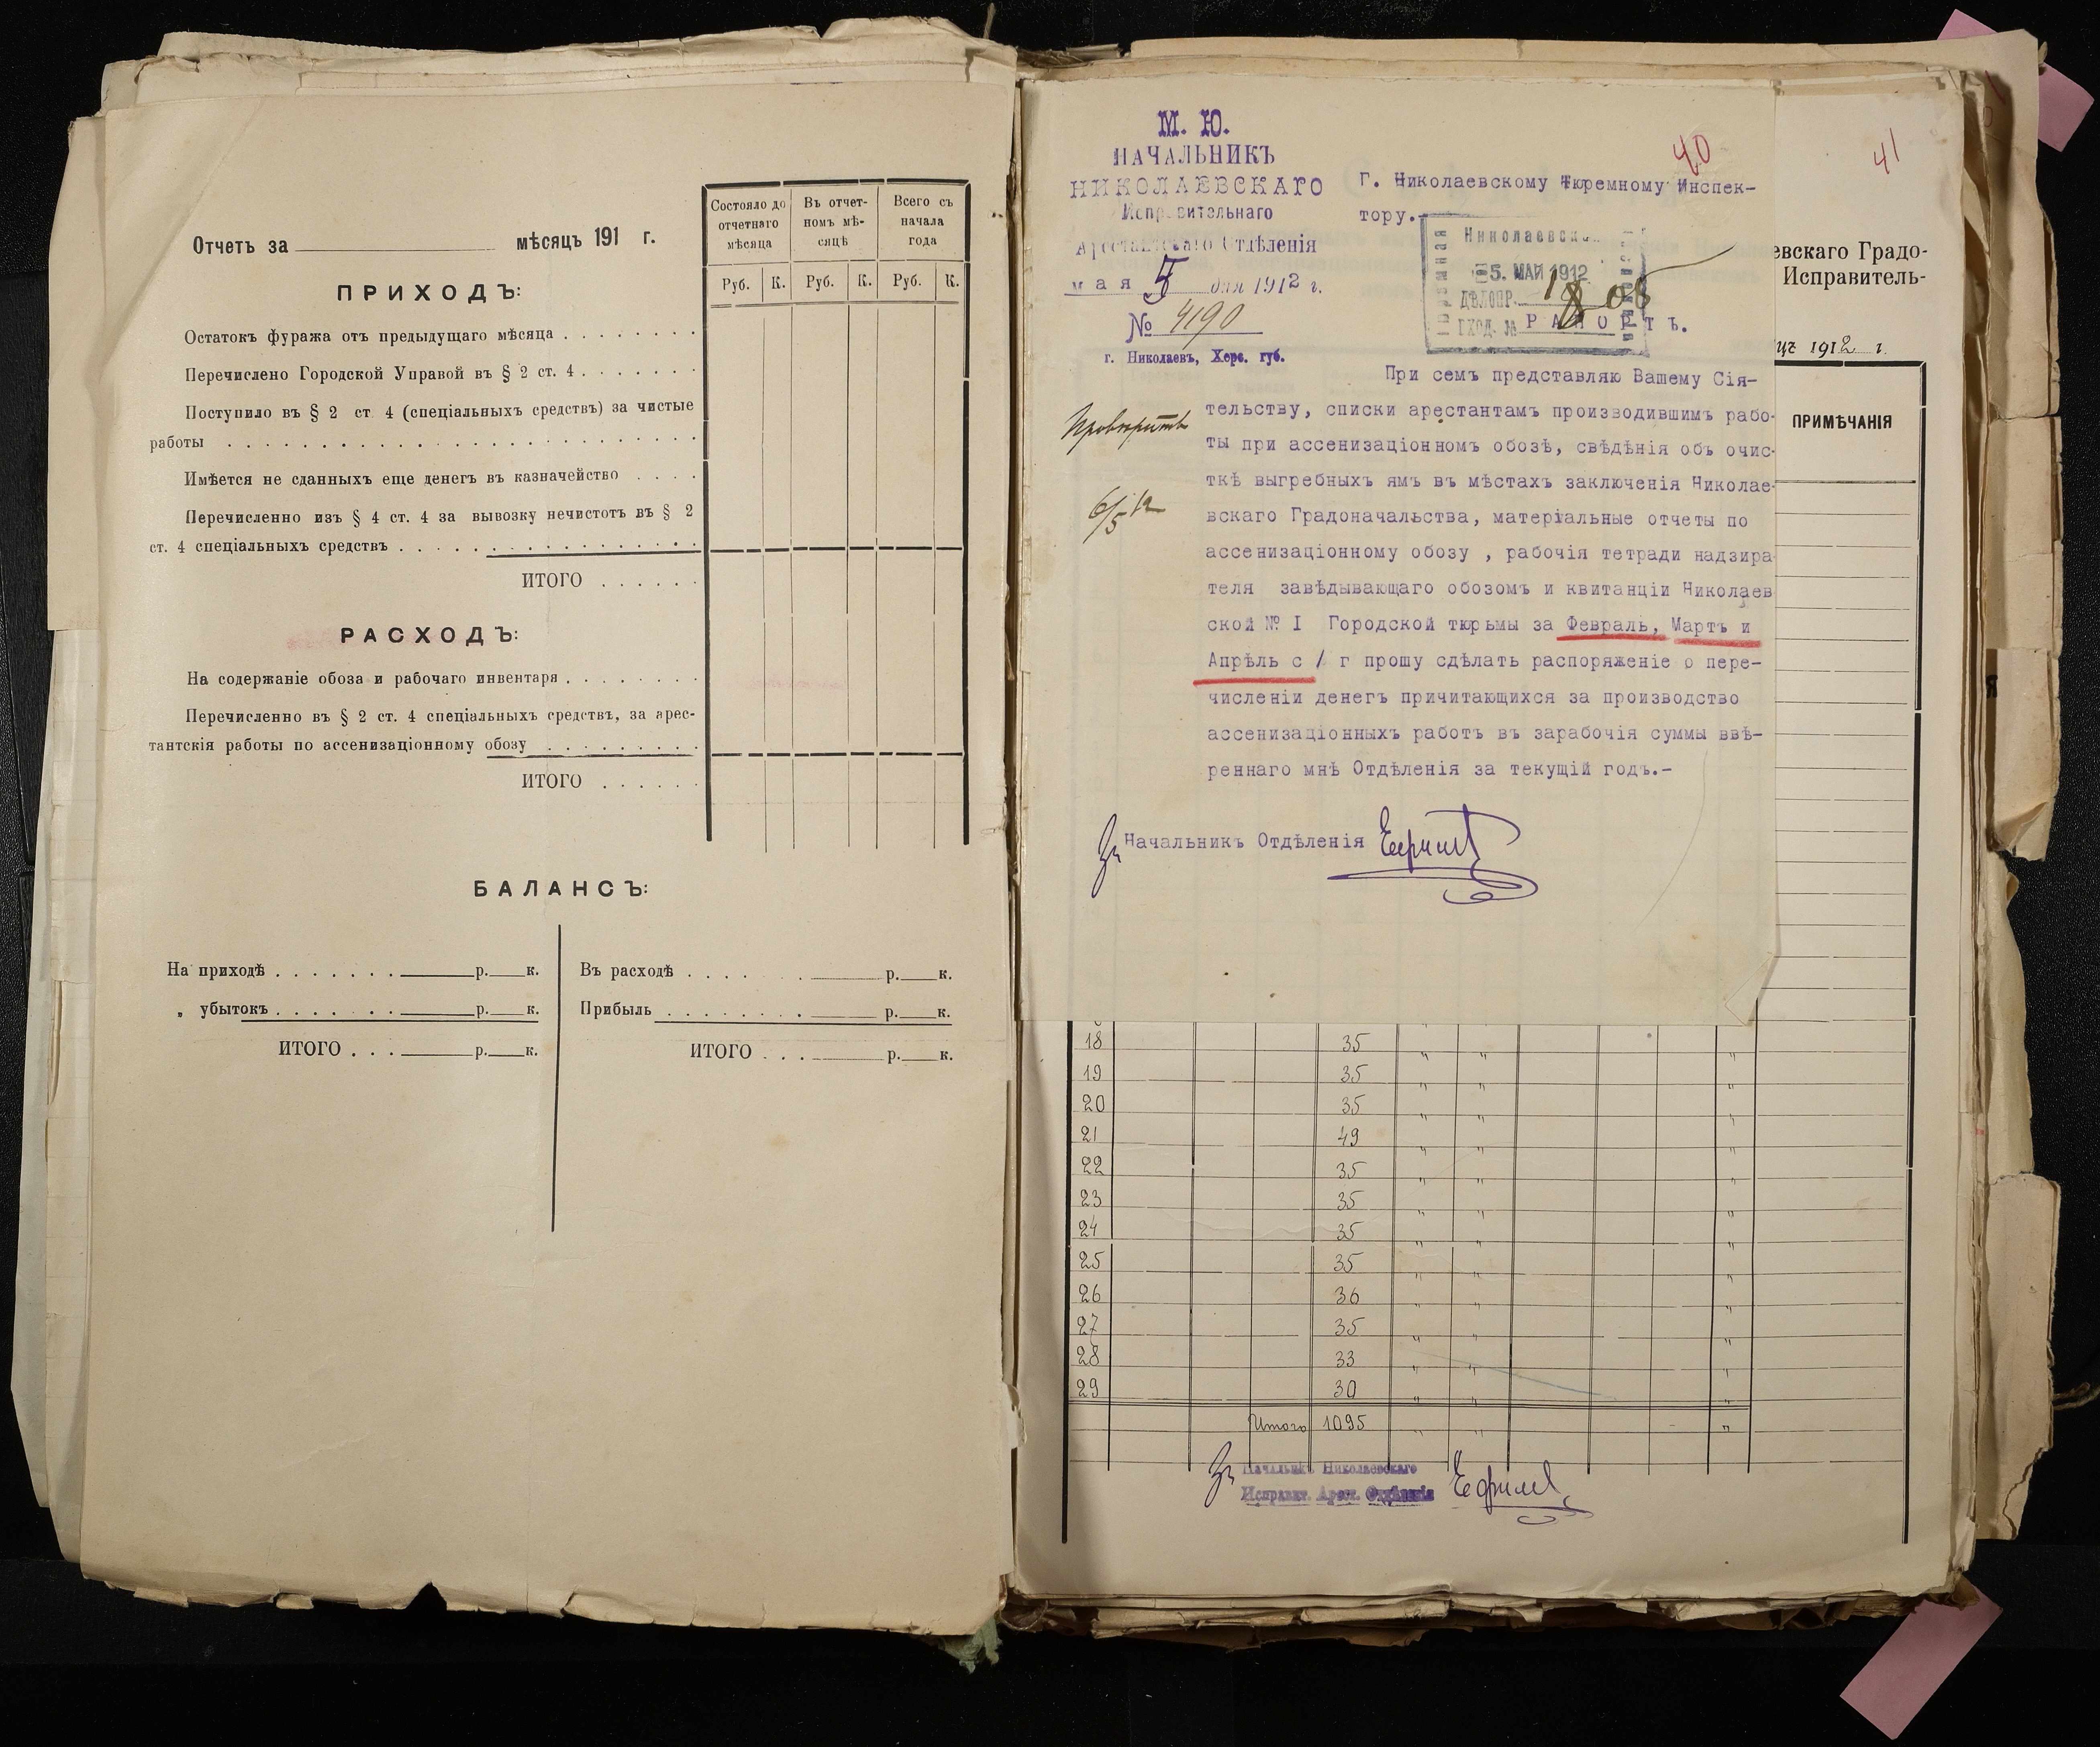 Отчетъ за мѣсяцъ 191 г.
Состояло до отчетнаго мѣсяца
Въ отчет-номъ мѣ-сяцѣ
Всего съ начала года
Руб. К. Руб. К. Руб. К.
ПРИХОДЪ:
Остатокъ фуража отъ предыдущаго мѣсяца . . . . . . .
Перечислено Городской Управой въ § 2 ст. 4 . . . . . . .
Поступило въ § 2 ст. 4 (спеціальныхъ средствъ) за чистые
работы . . . . . . . . . . . . . . . . . . . . . .
Имѣется не сданныхъ еще денегъ въ казначейство . . . .
Перечисленно изъ § 4 ст. 4 за вывозку нечистотъ въ § 2
ст. 4 спеціальныхъ средствъ . . . . . . . . . . . . . . .
ИТОГО . . . . . .
РАСХОДЪ:
На содержаніе обоза и рабочаго инвентаря . . . . . . .
Перечисленно въ § 2 ст. 4 спеціальныхъ средствъ, за арес-
тантскія работы по ассенизаціонному обозу . . . . . . . . .
ИТОГО . . . . . .
БАЛАНСЪ:
На приходѣ . . . . . . . р. к.
„ убытокъ . . . . . . . р. к.
ИТОГО . . . р. к.
Въ расходѣ . . . . р. к.
Прибыль . . . . . . . . р. к.
ИТОГО . . . р. к.
М. Ю.
НАЧАЛЬНИКЪ
НИКОЛАЕВСКАГО
Исправительнаго
Арестантскаго Отдѣленія
мая 5 дня 1912 г.
№ 4190
г. Николаевъ, Херс. губ.
40
Г. Николаевскому Тюремному Инспек-
тору.-
Николаевск
5. МАЙ 1912
ДѢЛОПР.
ВХОД. №
РАПОРТЪ.
Провѣрить
6/5 12
При семъ представляю Вашему Сія-
тельству, списки арестантамъ производившимъ рабо-
ты при ассенизаціонномъ обозѣ, свѣдѣнія объ очис-
ткѣ выгребныхъ ямъ въ мѣстахъ заключенія Николае-
вскаго Градоначальства, матеріальные отчеты по
ассенизаціонному обозу , рабочія тетради надзира
теля завѣдывающаго обозомъ и квитанціи Николаев
ской № I Городской тюрьмы за Февраль, Мартъ и
Апрѣль с / г прошу сдѣлать распоряженіе о пере-
численіи денегъ причитающихся за производство
ассенизаціонныхъ работъ въ зарабочія суммы ввѣ-
реннаго мнѣ Отдѣленія за текущій годъ.-
За Начальникъ Отдѣленія
41
евскаго Градо-
Исправитель-
цъ 1912 г.
ПРИМѢЧАНІЯ
18 35 " " "
19 35 " " "
20 35 " " "
21 49 " " "
22 35 " " "
23 35 " " "
24 35 " " "
25 35 " " "
26 36 " " "
27 35 " " "
28 33 " " "
29 30 " " "
Итого 1095 " " "
За Начальникъ Николаевскаго
Исправит. Арест. Отдѣленія